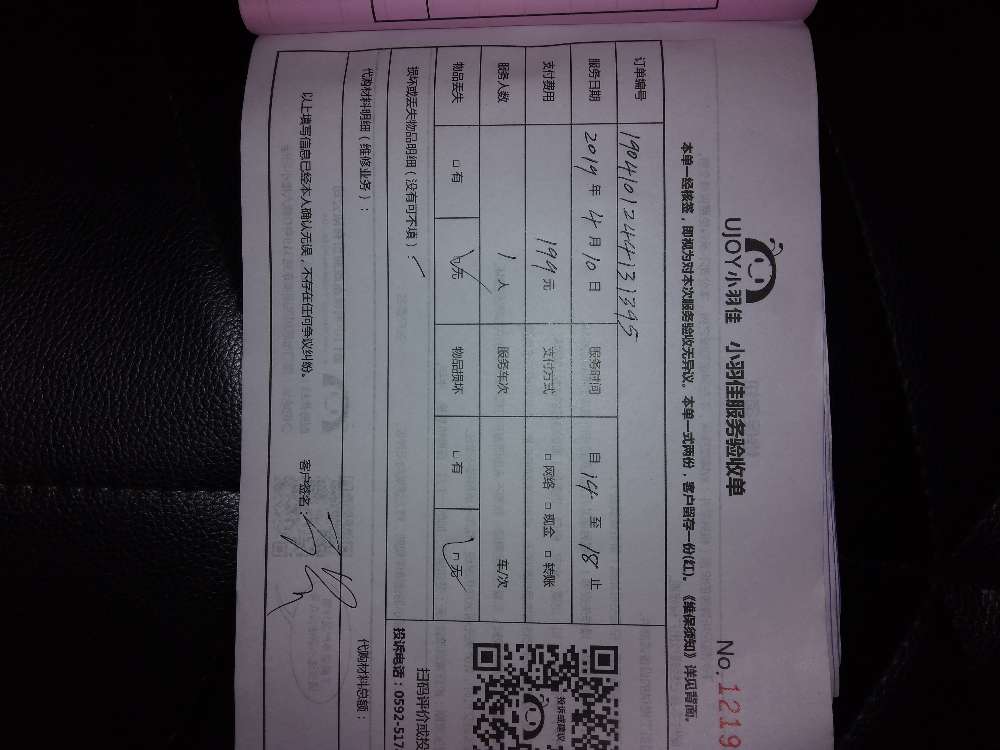 UJOY小羽佳 小羽佳服务验收单
No.1219
本单一经核签，即视为对本次服务验收无异议。本单一式两份，客户留存一份(红)。《维保须知》详见背面。
订单编号 1904101244131395
服务日期 2019年4月10日 服务时间 自14至18止
支付费用 199元 支付方式 □网络 □现金 □转账
服务人数 1人 服务车次 车/次
物品丢失 □有 □无 物品损坏 □有 □无
损坏或丢失物品明细（没有可不填）：
代购材料明细（维修业务）： 代购材料总额：
以上填写信息已经本人确认无误，不存在任何争议纠纷。 客户签名：
投诉或建议
扫码评价或投
投诉电话：0592-517